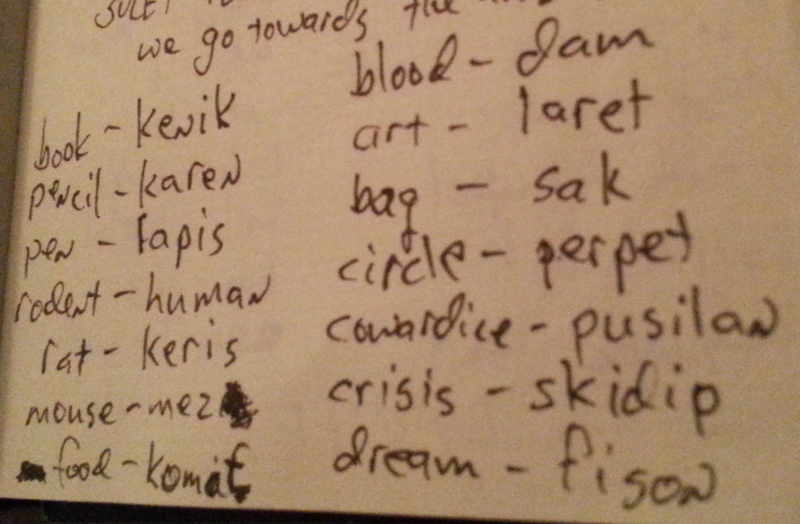 we go towards the
book - kenik
pencil - karen
pen - lapis
rodent - human
rat - keris
mouse - mez
food - komat
blood - dam
art - laret
bag - sak
circle - perpet
cowardice - pusilan
crisis - skidip
dream - fison